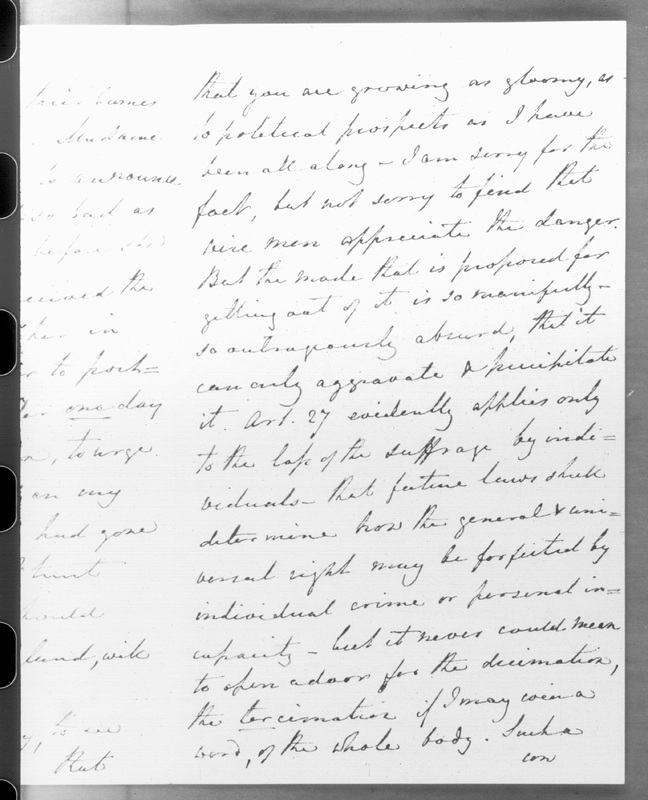 that you are growing as gloomy, as
to political prospects as I have
been all along – I am sorry for the
fact, but not sorry to find that
wise men appreciate the danger.
But the mode that is proposed for
getting out of it is so manifestly –
so outrageously absurd, that it
can only aggravate & precipitate
it. Art. 27 evidently applies only
to the loss of the suffrage by indi=
viduals – that future laws shall
determine how the general & uni=
versal right may be forfeited by
individual crime or personal in=
capacity – but it never could mean
to open a door for the decimation,
the tercimation if I may coin a
word, of the whole body. Such a
con
names
Madame
announce
bad as
before
the
in
to post=
one day
, to urge
an my
had gone
hunt
, with
, to see
that